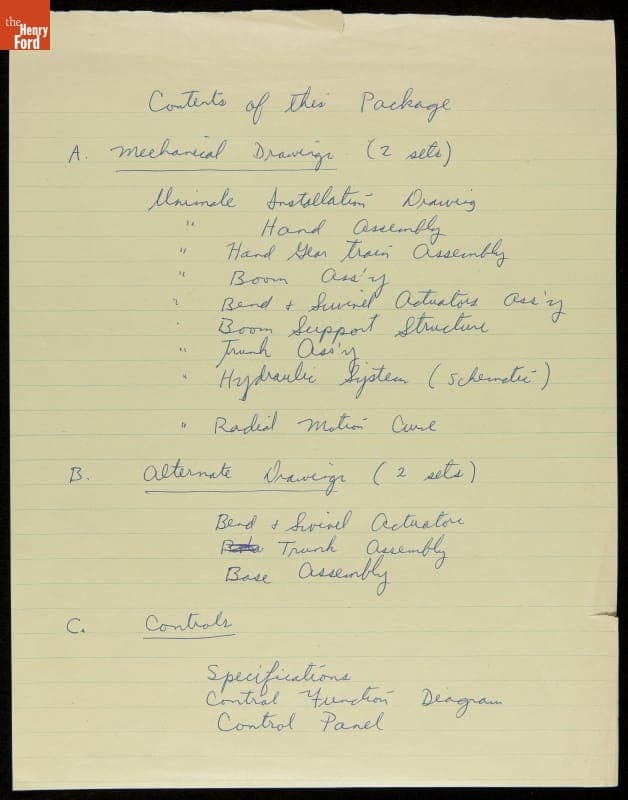 the
Henry
Ford
Contents of this Package
A. Mechanical Drawings (2 sets)
Unimate Installation Drawing
" Hand Assembly
" Hand Gear Train Assembly
" Boom Ass'y
" Bend & Swivel Actuators Ass'y
" Boom Support Structure
" Trunk Ass'y
" Hydraulic System (Schematic)
" Radial Motion Curve
B. Alternate Drawings (2 sets)
Bend & Swivel Actuators
Trunk Assembly
Base Assembly
C. Controls
Specifications
Control Function Diagram
Control Panel